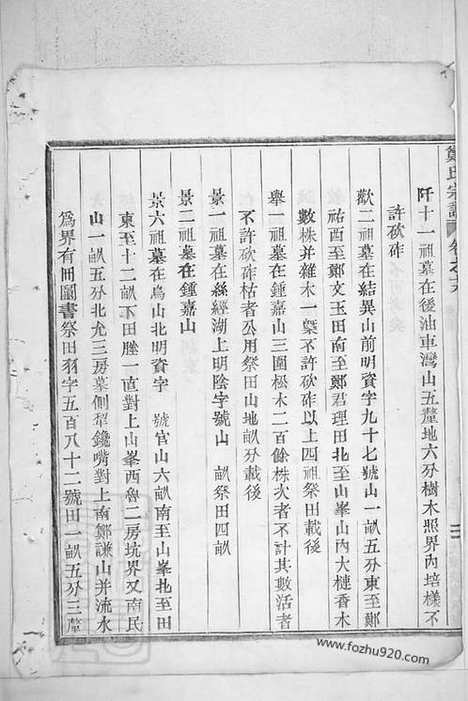 鄭氏宗譜 卷之六
阡十一祖墓在後油車灣山五釐地六分樹木照界內培樣不
許砍砟
歡二祖墓在結異山前明資字九十七號山一畝五分東至鄭
祐酉至鄭文玉田南至鄭君理田北至山峯山內大槤香木
數株并雜木一槩不許砍砟以上四祖祭田載後
舉一祖墓在鍾嘉山三圍松木二百餘株次者不計其數活者
不許砍砟枯者公用祭田山地畝分載後
景一祖墓在絲經湖上明陰字號山 畝祭田四畝
景二祖墓在鍾嘉山
景六祖墓在烏山北明資字 號官山六畝南至山峯北至田
東至十二畝下田塍一直對上山峯西魯二房坑界又南民
山一畝五分北尤三房墓側犁鑱嘴對上南鄭謙山并流水
為界有冊圖書祭田羽字五百八十二號田一畝五分三釐
www.fozhu920.com